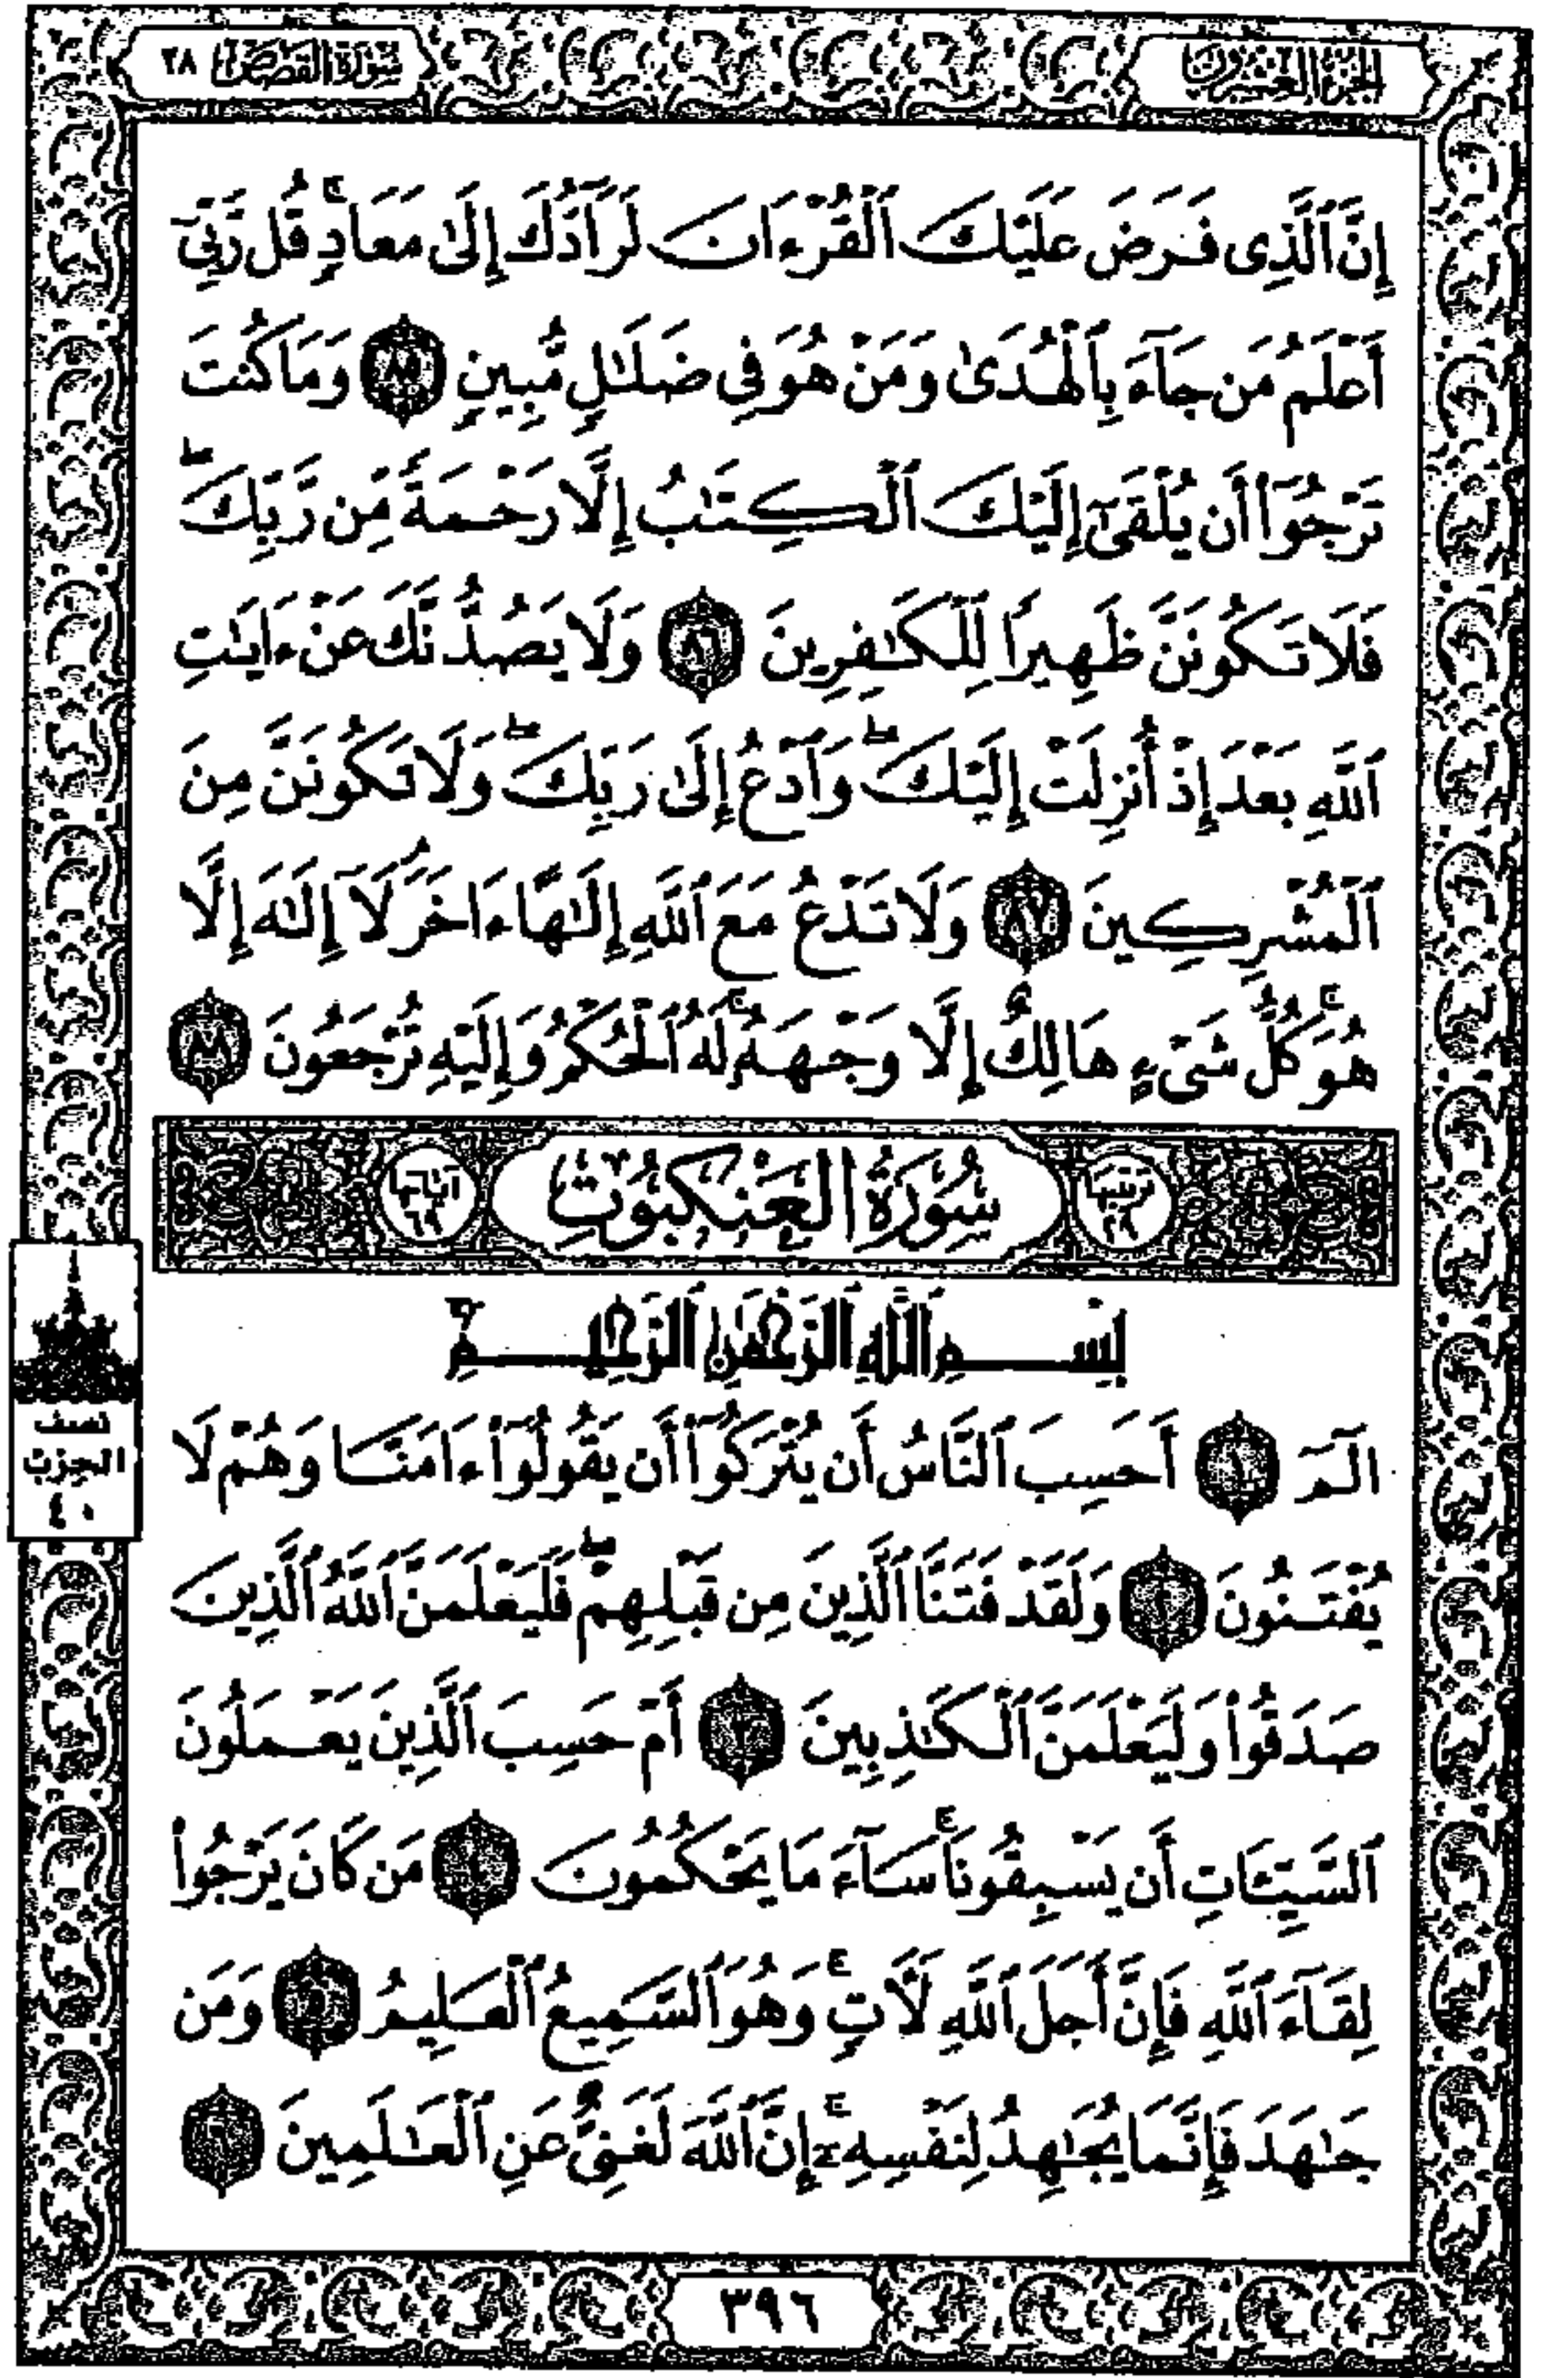 الجزء العشرون
سورة القصص ٢٨
إِنَّ ٱلَّذِى فَرَضَ عَلَيْكَ ٱلْقُرْءَانَ لَرَآدُّكَ إِلَىٰ مَعَادٍ ۚ قُل رَّبِّىٓ
أَعْلَمُ مَن جَآءَ بِٱلْهُدَىٰ وَمَنْ هُوَ فِى ضَلَـٰلٍ مُّبِينٍ ٨٥ وَمَا كُنتَ
تَرْجُوٓا۟ أَن يُلْقَىٰٓ إِلَيْكَ ٱلْكِتَـٰبُ إِلَّا رَحْمَةً مِّن رَّبِّكَ ۖ
فَلَا تَكُونَنَّ ظَهِيرًا لِّلْكَـٰفِرِينَ ٨٦ وَلَا يَصُدُّنَّكَ عَنْ ءَايَـٰتِ
ٱللَّهِ بَعْدَ إِذْ أُنزِلَتْ إِلَيْكَ ۖ وَٱدْعُ إِلَىٰ رَبِّكَ ۖ وَلَا تَكُونَنَّ مِنَ
ٱلْمُشْرِكِينَ ٨٧ وَلَا تَدْعُ مَعَ ٱللَّهِ إِلَـٰهًا ءَاخَرَ ۘ لَآ إِلَـٰهَ إِلَّا
هُوَ ۚ كُلُّ شَىْءٍ هَالِكٌ إِلَّا وَجْهَهُۥ ۚ لَهُ ٱلْحُكْمُ وَإِلَيْهِ تُرْجَعُونَ ٨٨
ترتيبها ٢٩
سُورَةُ العَنكبُوتِ
آياتها ٦٩
بِسْمِ ٱللَّهِ ٱلرَّحْمَـٰنِ ٱلرَّحِيمِ
الٓمٓ ١ أَحَسِبَ ٱلنَّاسُ أَن يُتْرَكُوٓا۟ أَن يَقُولُوٓا۟ ءَامَنَّا وَهُمْ لَا
يُفْتَنُونَ ٢ وَلَقَدْ فَتَنَّا ٱلَّذِينَ مِن قَبْلِهِمْ ۖ فَلَيَعْلَمَنَّ ٱللَّهُ ٱلَّذِينَ
صَدَقُوا۟ وَلَيَعْلَمَنَّ ٱلْكَـٰذِبِينَ ٣ أَمْ حَسِبَ ٱلَّذِينَ يَعْمَلُونَ
ٱلسَّيِّـَٔاتِ أَن يَسْبِقُونَا ۚ سَآءَ مَا يَحْكُمُونَ ٤ مَن كَانَ يَرْجُوا۟
لِقَآءَ ٱللَّهِ فَإِنَّ أَجَلَ ٱللَّهِ لَـَٔاتٍ ۚ وَهُوَ ٱلسَّمِيعُ ٱلْعَلِيمُ ٥ وَمَن
جَـٰهَدَ فَإِنَّمَا يُجَـٰهِدُ لِنَفْسِهِۦٓ ۚ إِنَّ ٱللَّهَ لَغَنِىٌّ عَنِ ٱلْعَـٰلَمِينَ ٦
نصف
الحزب
٤٠
٣٩٦